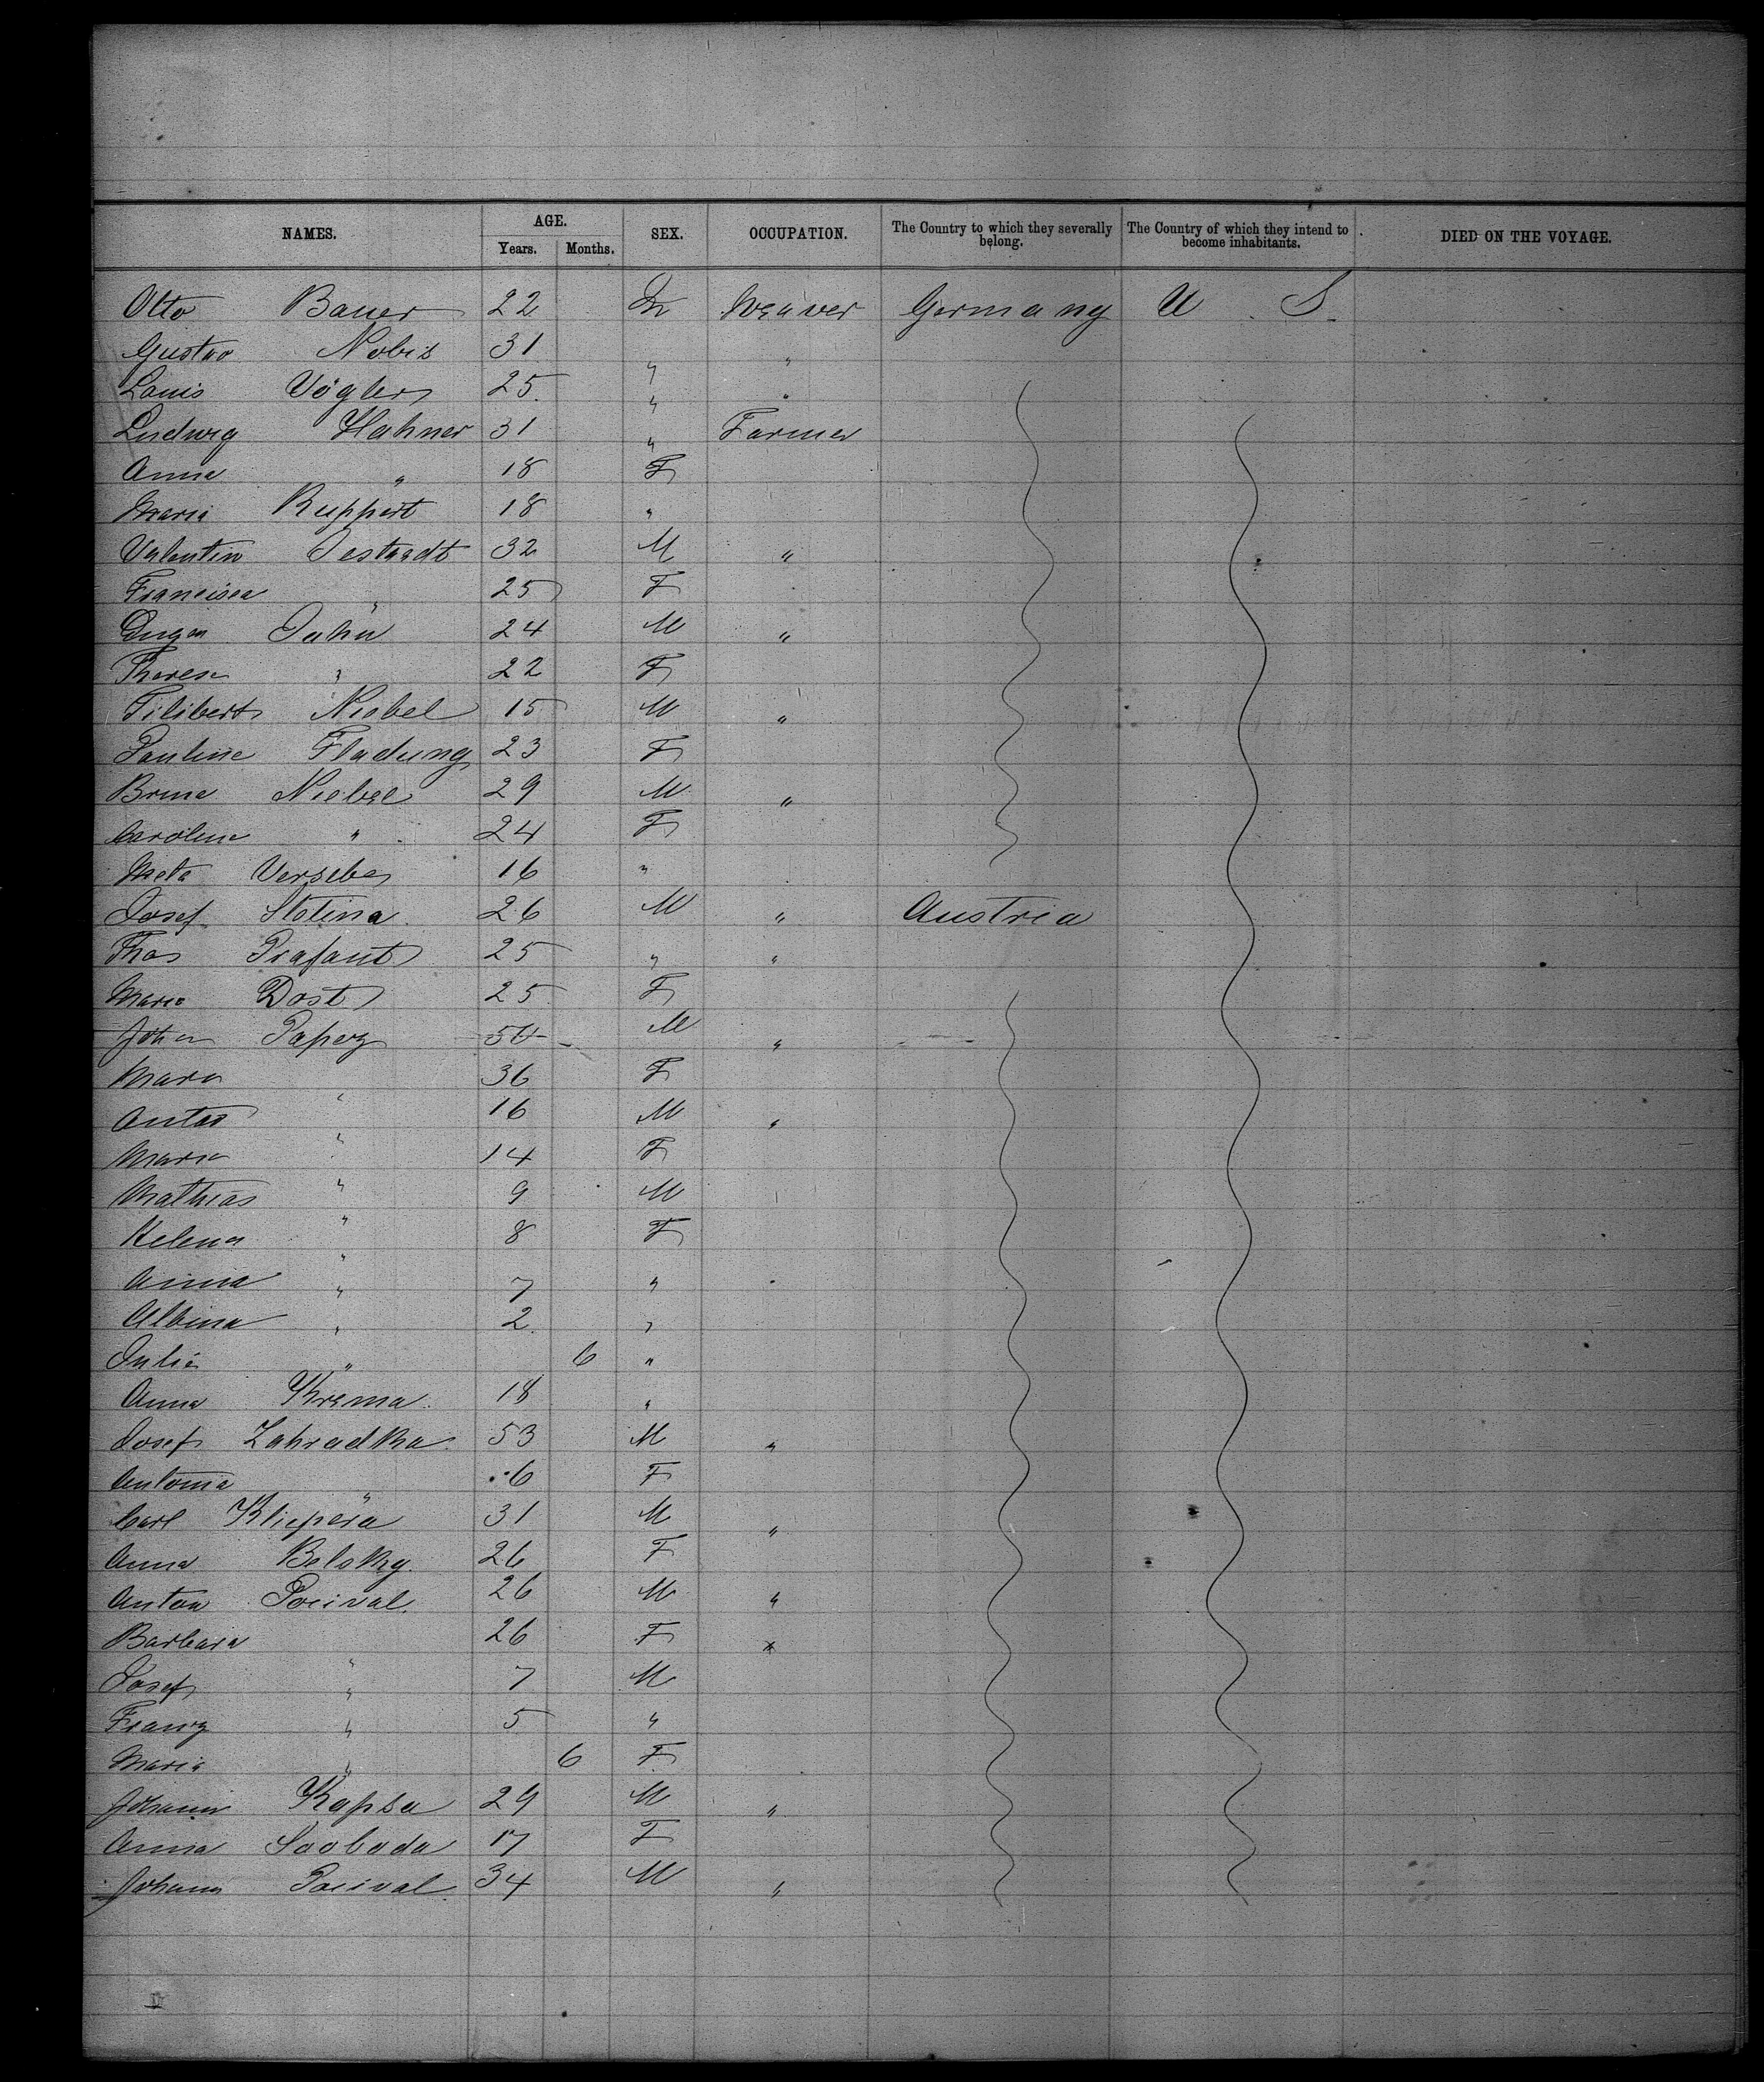 NAMES. AGE. SEX. OCCUPATION. The Country to which they severally belong. The Country of which they intend to become inhabitants. DIED ON THE VOYAGE.
Years. Months.
Otto Bauer 22 M Weaver Germany U S
Gustav Nobis 31 " "
Louis Vögler 25 " "
Ludwig Hahner 31 " Farmer
Anna " 18 F
Maria Ruppert 18 "
Valentin Jestaedt 32 M "
Francisca " 25 F
Eugen Jahn 24 M "
Therese " 22 F
Filibert Niebel 15 M "
Pauline Fladung 23 F
Bruno Niebel 29 M "
Caroline " 24 F
Meta 16 "
Josef Stolina 26 M " Austria
Thos 25 " "
Marie Dost 25 F
Johan Papez 50 M "
Maria " 36 F
Anton " 16 M "
Maria " 14 F
Mathias " 9 M
Helena " 8 F
Anna " 7 "
Albina " 2 "
Julia " 6 "
Anna Krema 18 "
Josef Zahradka 53 M "
Antonia " 6 F
Carl Kliepera 31 M "
Anna Belsky 26 F
Anton Pocival 26 M "
Barbara " 26 F "
Josef " 7 M
Franz " 5 "
Maria " 6 F
Johann Kapsa 29 M "
Anna Svoboda 17 F
Johann Pocival 34 M "